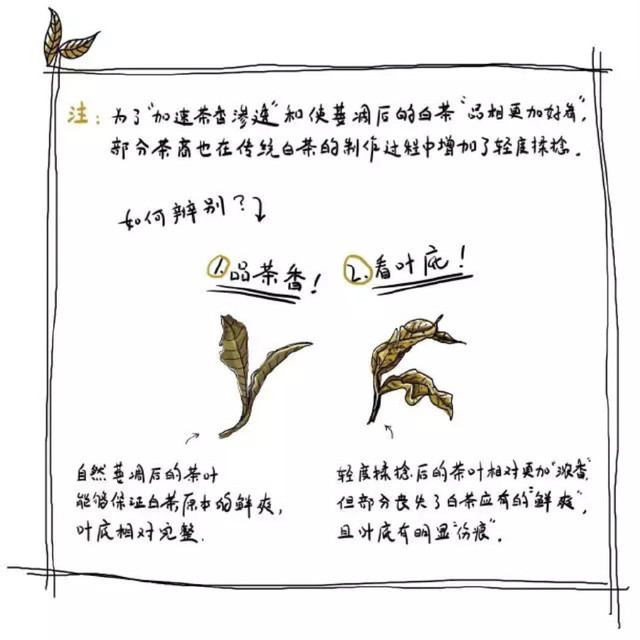 注：为了“加速茶香渗透”和使萎凋后的白茶“品相更加好看”，
部分茶商也在传统白茶的制作过程中增加了轻度揉捻。
如何辨别？
1.品茶香！
2.看叶底！
自然萎凋后的茶叶
能够保证白茶原本的鲜爽，
叶底相对完整.
轻度揉捻后的茶叶相对更加“浓香”
但部分丧失了白茶应有的“鲜爽”，
且叶底有明显“伤痕”。